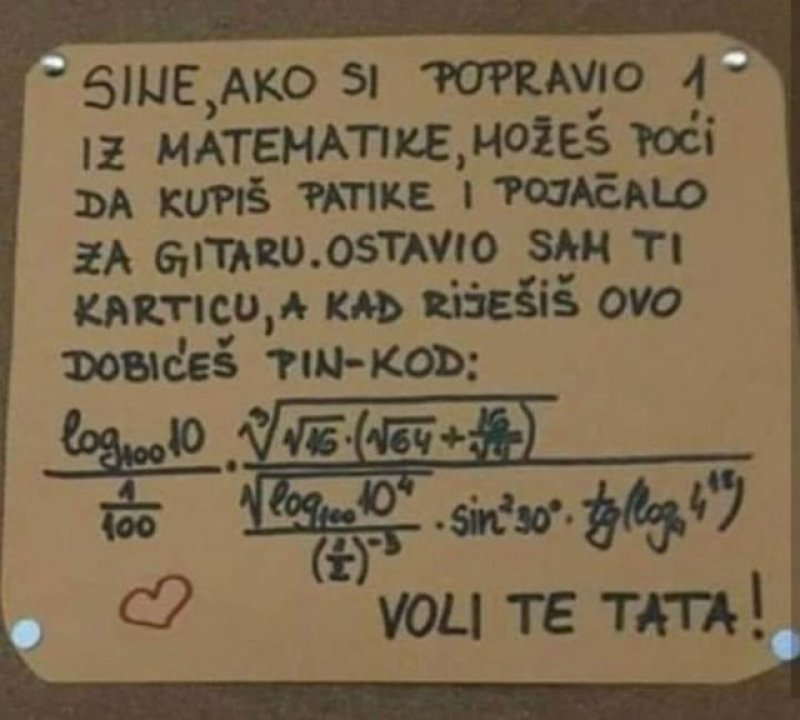 SINE, AKO SI POPRAVIO 1
IZ MATEMATIKE, MOŽEŠ POĆI
DA KUPIŠ PATIKE I POJAČALO
ZA GITARU. OSTAVIO SAM TI
KARTICU, A KAD RIJEŠIŠ OVO
DOBIĆEŠ PIN-KOD:
log₁₀₀10 / (1/100) · ∛(√16·(√64+
√(log₁₀₀10⁴) / (1/2)⁻³ · sin²30° · tg(log₄
VOLI TE TATA!